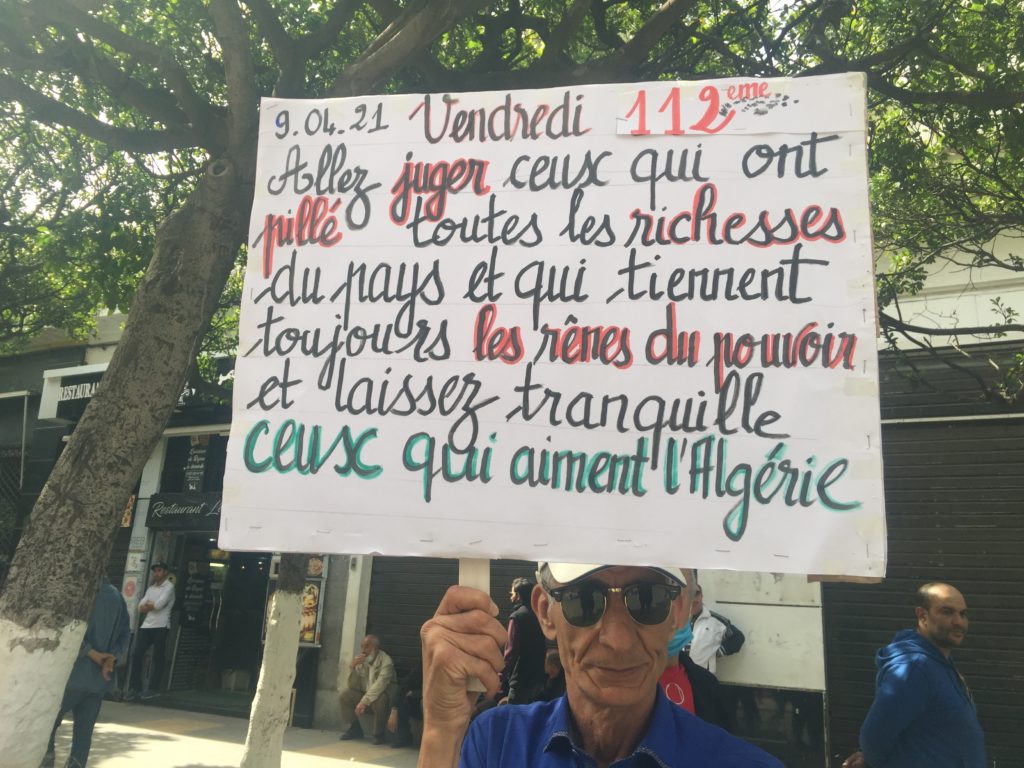 9.04.21 Vendredi 112eme
Allez juger ceux qui ont
pillé toutes les richesses
du pays et qui tiennent
toujours les rênes du pouvoir
et laissez tranquille
ceux qui aiment l'Algérie
RESTAURAN
Restaurant Le